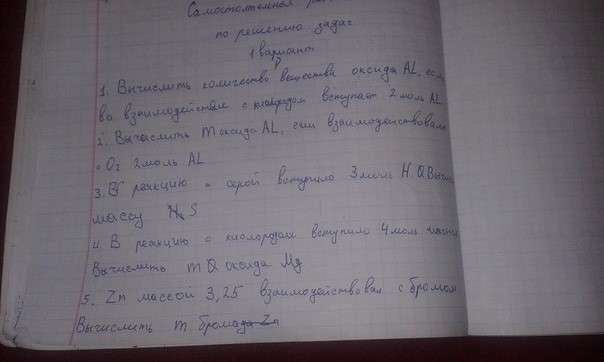 Самостоятельная
по решению задач
1 вариант
1. Вычислить количество вещества оксида AL, если
во взаимодействие с кислородом вступает 2 моль AL
2. Вычислить m оксида AL, если взаимодействовало
с O2 2 моль AL
3. В реакцию с серой вступило 3 моль H.
массу H2S
4. В реакцию с кислородом вступило 4 моль
Вычислить m оксида Mg
5. Zn массой 3,25 взаимодействовал с бромом
Вычислить m брома